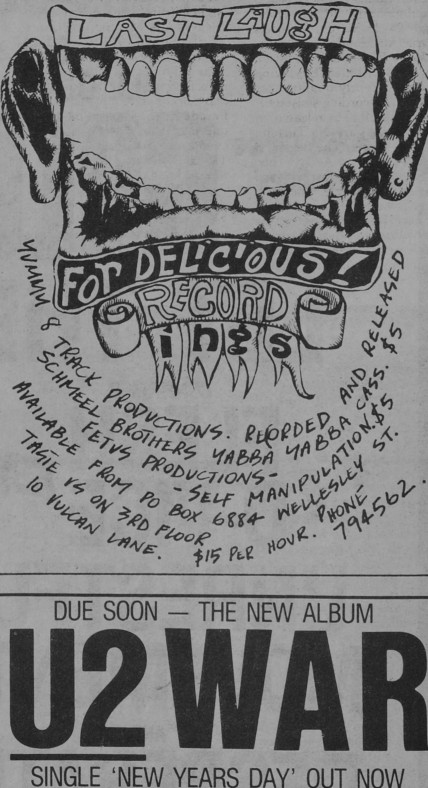 LAST LAUGH
FOR DELiCiOUS!
RECORD
ings
YUMMM 8 TRACK PRODUCTIONS. RECORDED AND RELEASED
SCHMEEL BROTHERS YABBA YABBA CASS. $5
FETUS PRODUCTIONS - - SELF MANIPULATION.$5
AVAILABLE FROM PO BOX 6884 WELLESLEY ST.
TASTE US ON 3RD FLOOR
10 VULCAN LANE. $15 PER HOUR. PHONE
794562.
DUE SOON — THE NEW ALBUM
U2 WAR
SINGLE 'NEW YEARS DAY' OUT NOW